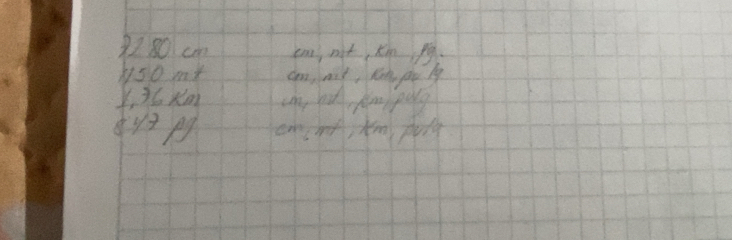 3280 cm cm, mt, Km, Pg.
1150 mt cm, mt, Km, pulg
1,36 Km cm, mt, Km, pulg
847 pg cm, mt, Km, pulg